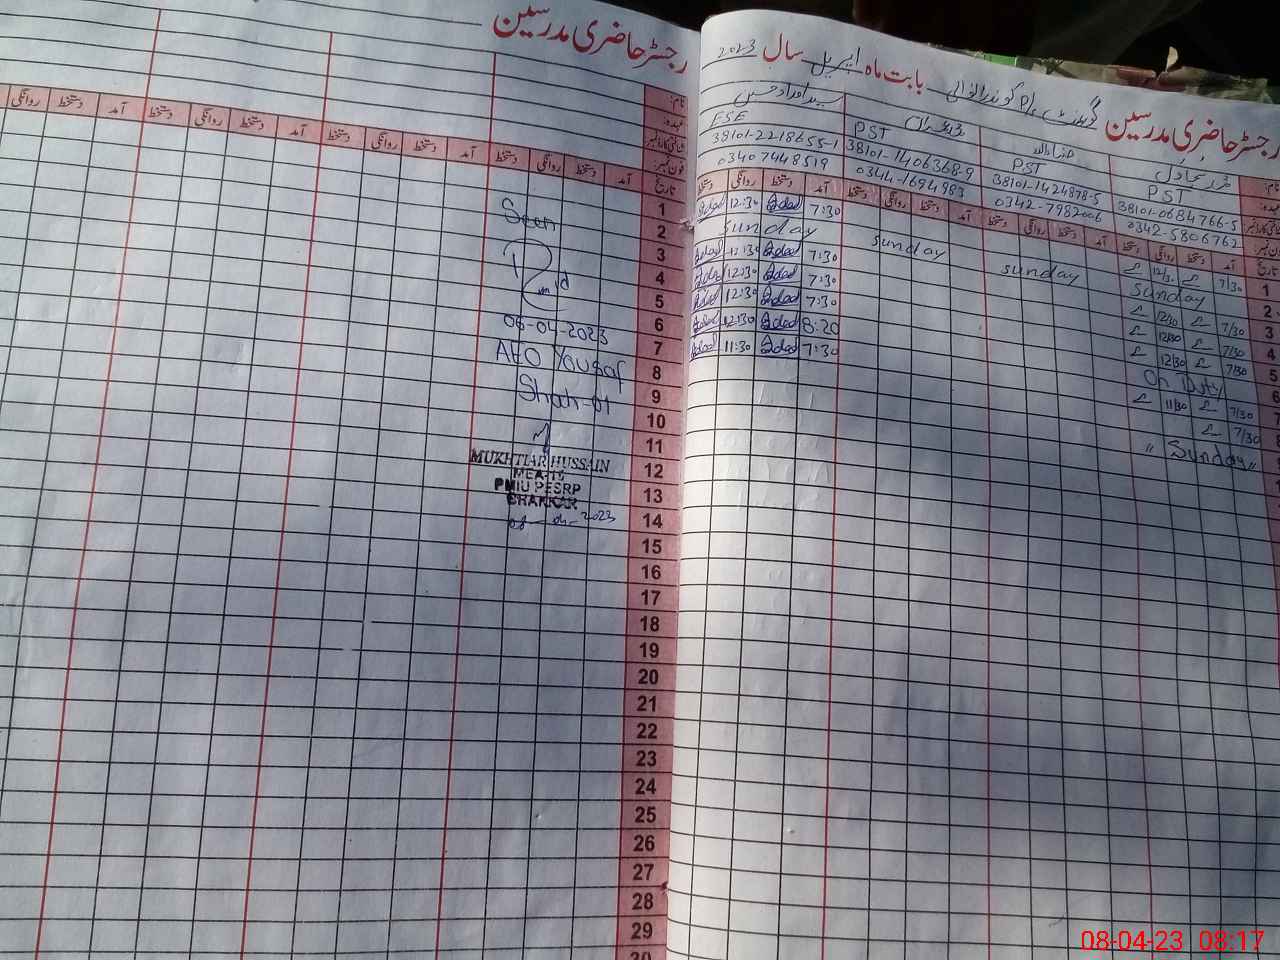 رجسٹر حاضری مدرسین
بابت ماہ اپریل سال 2023
نام:
عہدہ:
فون نمبر:
تاریخ
PST
38101-0684766-5
0342-5806762
PST
38101-1424878-5
0342-7982006
PST
38101-1406368-9
0344-1694983
ESE
38101-2218655-1
03407448519
آمد دستخط روانگی دستخط آمد دستخط روانگی دستخط آمد دستخط روانگی دستخط آمد دستخط روانگی دستخط
1 7/30 12/30 7:30 12:30
2 Sunday sunday sunday sunday
3 7/30 12/30 7:30 12:30
4 7/30 12/30 7:30 12:30
5 7/30 12/30 7:30 12:30
6 On Duty 8:20 12:30
7/30 11/30 7:30 11:30
7/30
" Sunday "
رجسٹر حاضری مدرسین
نام:
عہدہ:
فون نمبر:
تاریخ آمد دستخط روانگی دستخط آمد دستخط روانگی دستخط آمد دستخط روانگی دستخط آمد دستخط روانگی
1
2
3
4
5
6
7
8
9
10
11
12
13
14
15
16
17
18
19
20
21
22
23
24
25
26
27
28
29
30
Seen
06-04-2023
AEO Yousaf
Shah-01
MUKHTIAR HUSSAIN
PMIU PESRP
BHAKKAR
08-04-2023
08-04-23 08:17